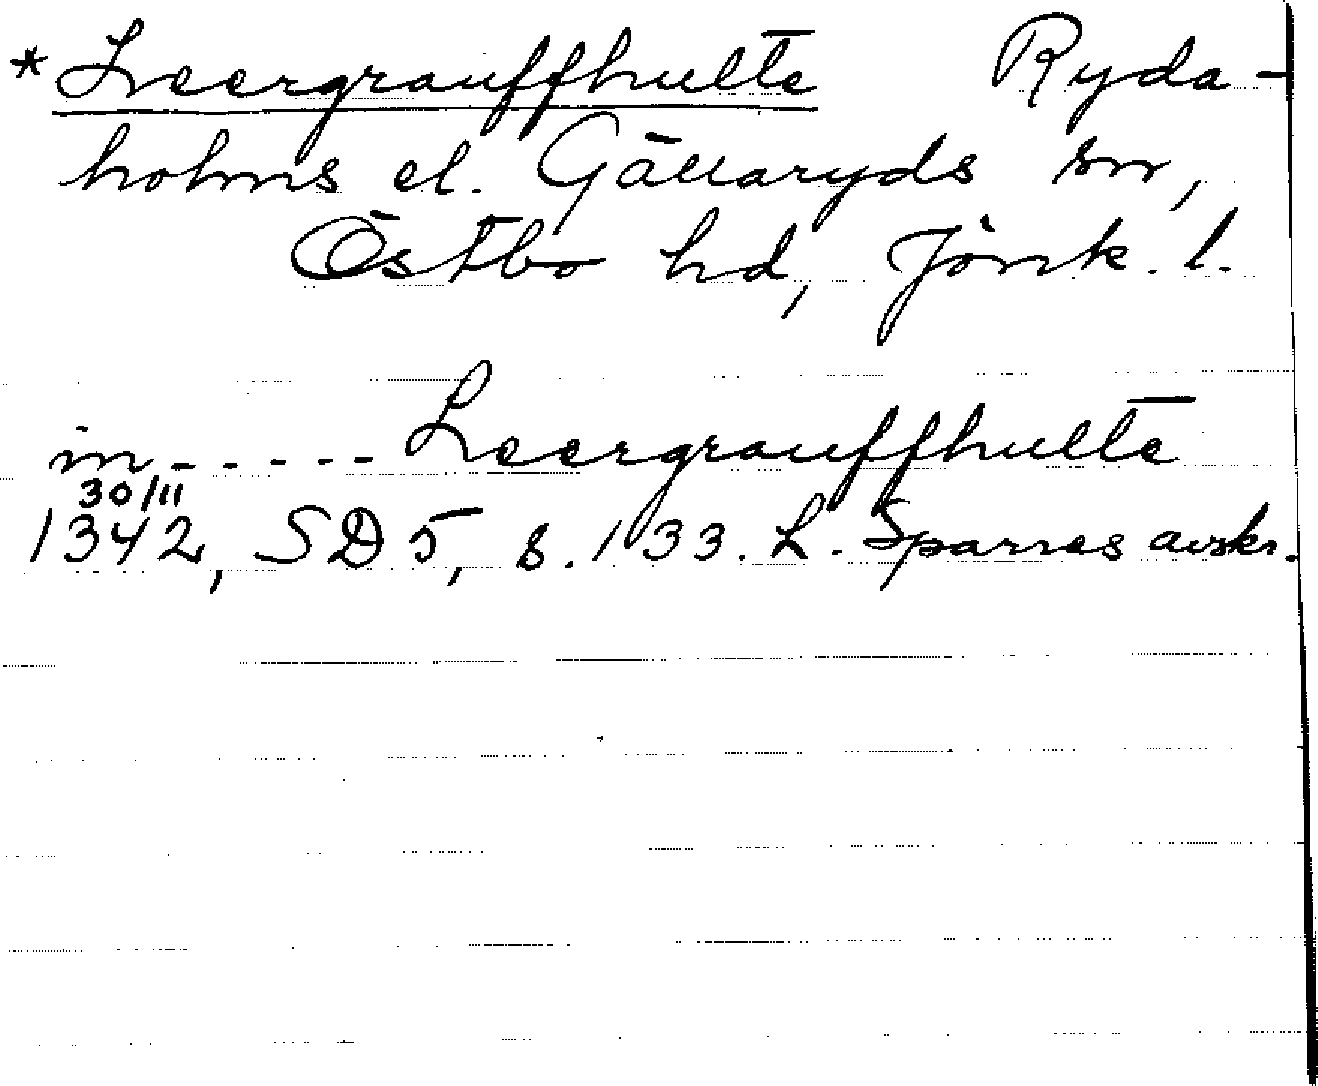 * Leergrauffhulte Ryda-
holms el. Gällaryds sn,
Östbo hd, Jönk. l.
in - - - - - Leergrauffhulte
30/11
1342, SD 5, s. 133. L. Sparres avskr.